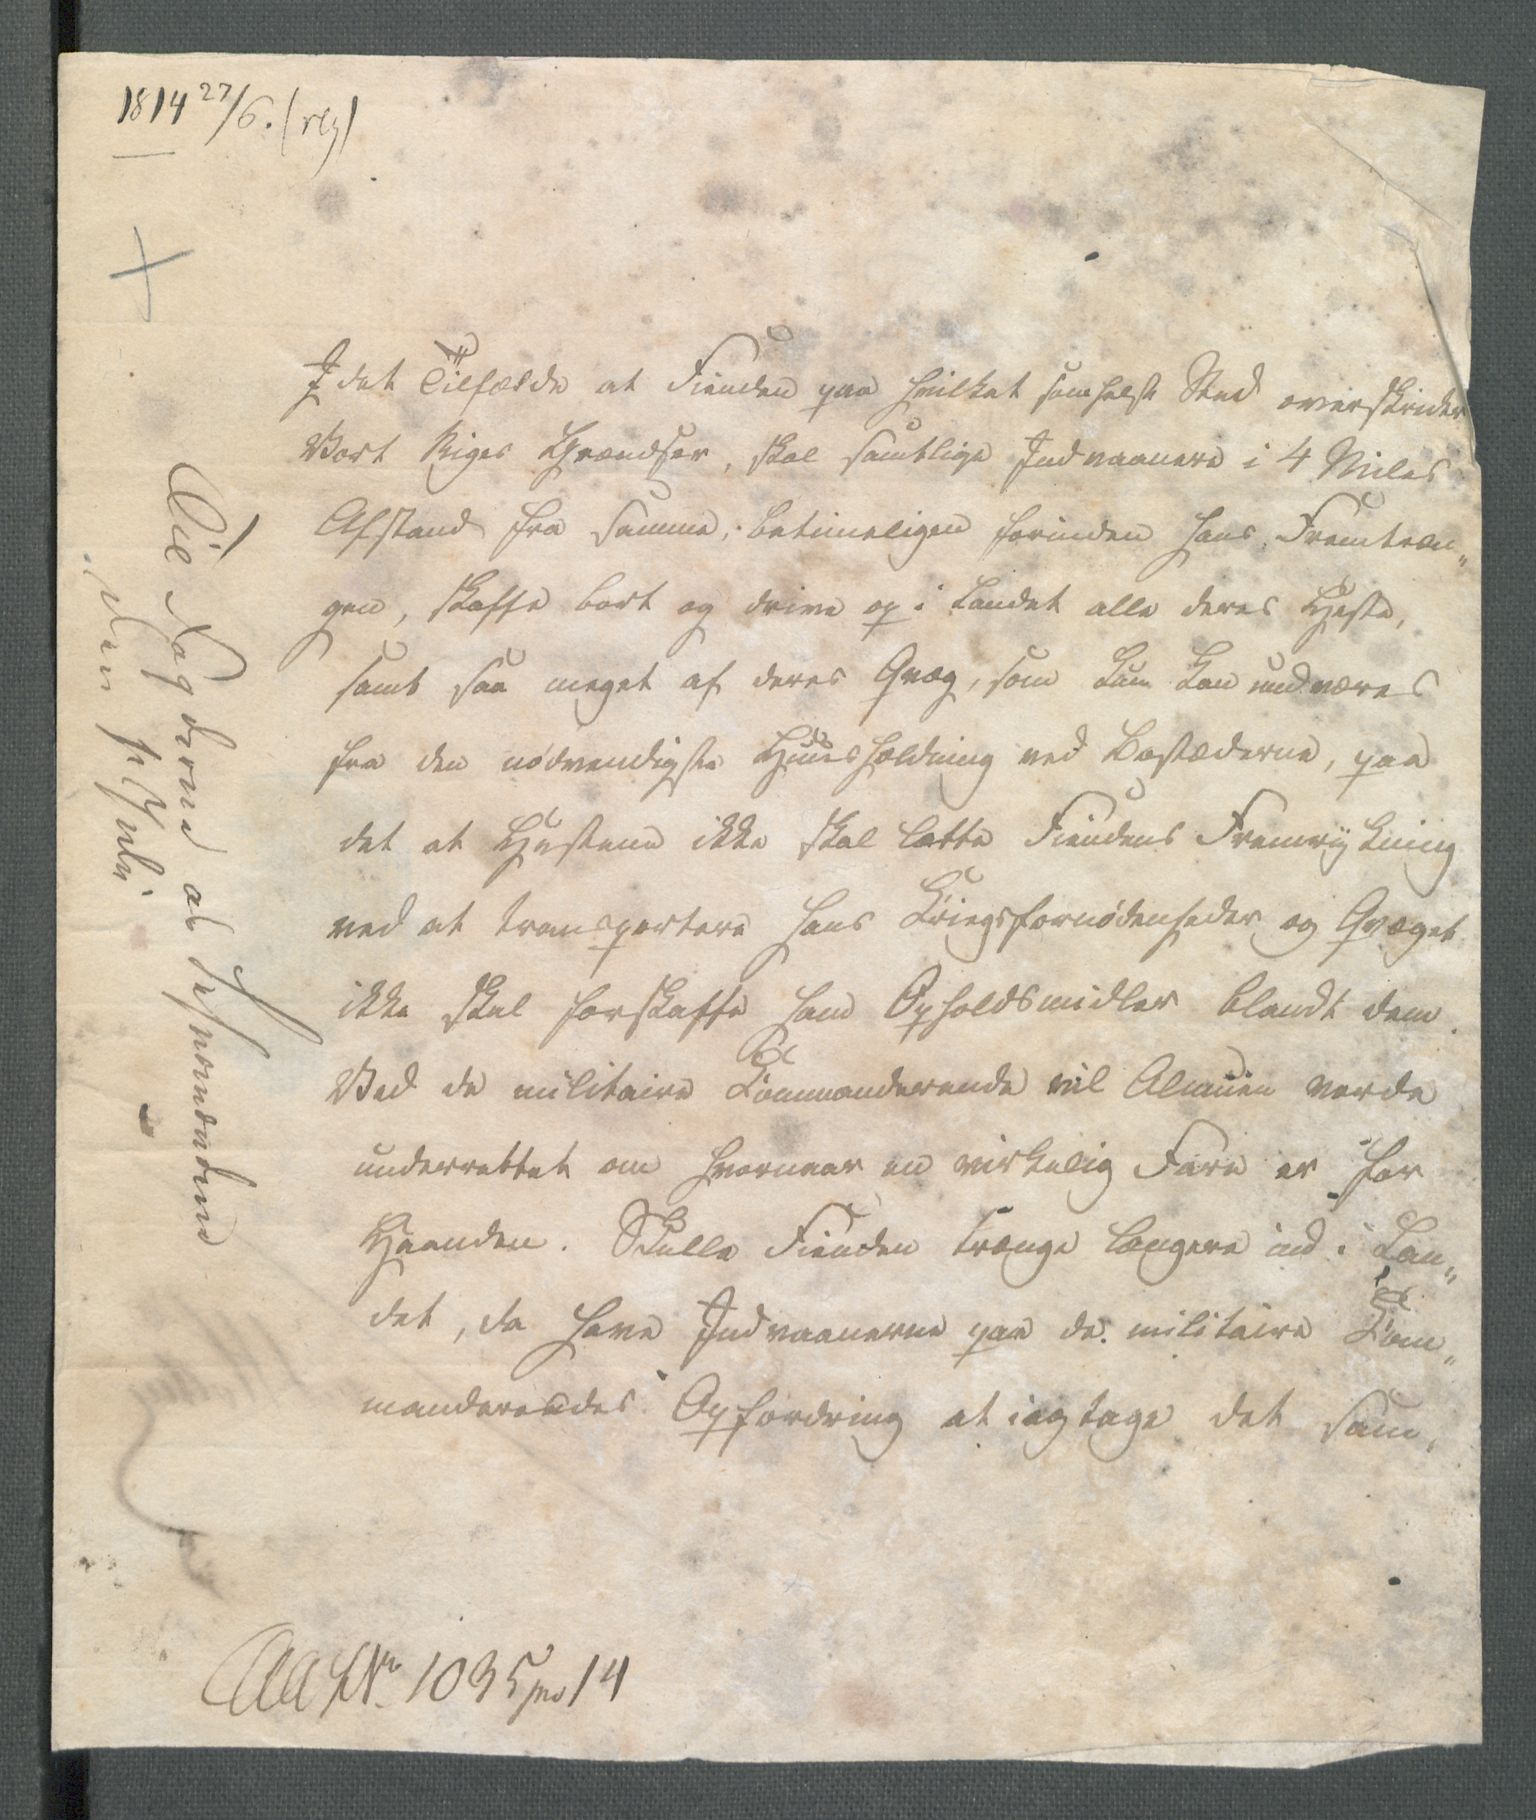 1814 27/6. (
I det Tilfælde at Fienden paa hvilket somhelst Sted overskrider
Vort Riges Grændser, skal samtlige Indvaanere i 4 Miles
Afstand fra samme, betimeligen forinden hans Fremtræn„
gen, skaffe bort og drive op i Landet alle deres Heste,
samt saa meget af deres Qvæg, som kun kan undværes
fra den nødvendigste Huusholdning ved Bostæderne, paa
det at Hestene ikke skal lette Fiendens Fremrykning
ved at transportere hans Kriegsfornødenheder og Qvæget
ikke skal forskaffe ham Opholdsmidler blandt dem.
Ved de militaire Commanderende vil Almuen vorde
underrettet om hvornaar en virkelig Fare er for
Haanden. Skulle Fienden trænge længere ind i Lan„
det, da have Indvaanerne paa de militaire Com„
manderendes Opfordring at iagtage det sam„
Til Fogderne
Den 1 Juli
No 1035 pro 14